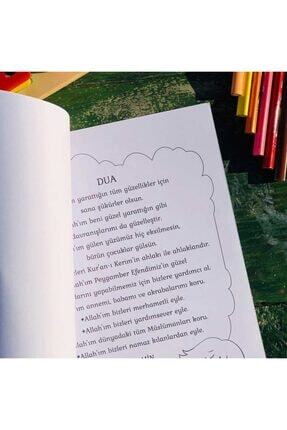 DUA
yarattığın tüm güzellikler için
sana şükürler olsun.
beni güzel yarattığın gibi
davranışlarımı da güzelleştir.
gülen yüzümüz hiç eksilmesin,
bütün çocuklar gülsün.
Kur'an-ı Kerim'in ahlakı ile ahlaklandır.
Peygamber Efendimiz'in güzel
yapabilmemiz için bizlere yardımcı ol.
annemi, babamı ve akrabalarımı koru.
•Allah'ım bizleri merhametli eyle.
•Allah'ım bizleri yardımsever eyle.
dünyadaki tüm Müslümanları koru.
bizleri namaz kılanlardan eyle.